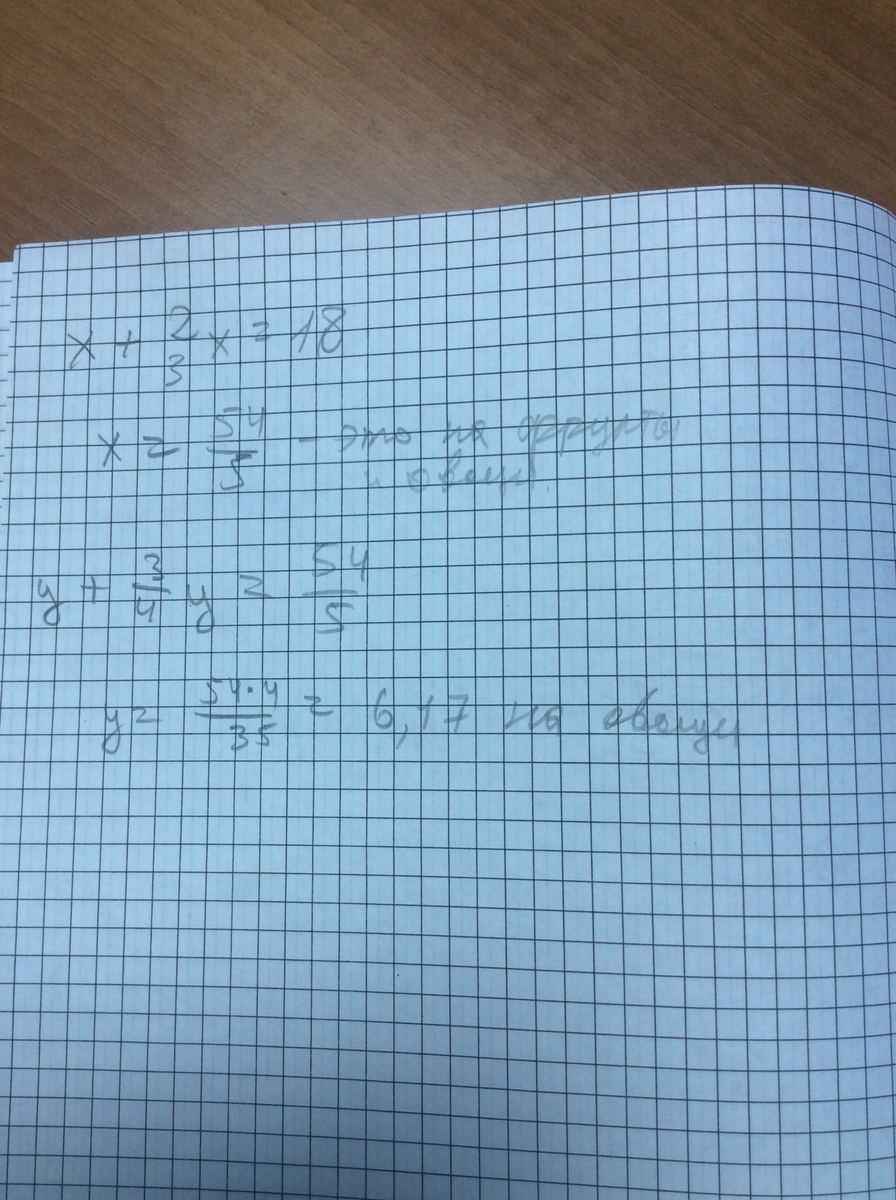 x + 2/3 x = 18
x = 54/5 - это на фрукты
и овощи.
y + 3/4 y = 54/5
y = 54·4/35 = 6,17 на овощи